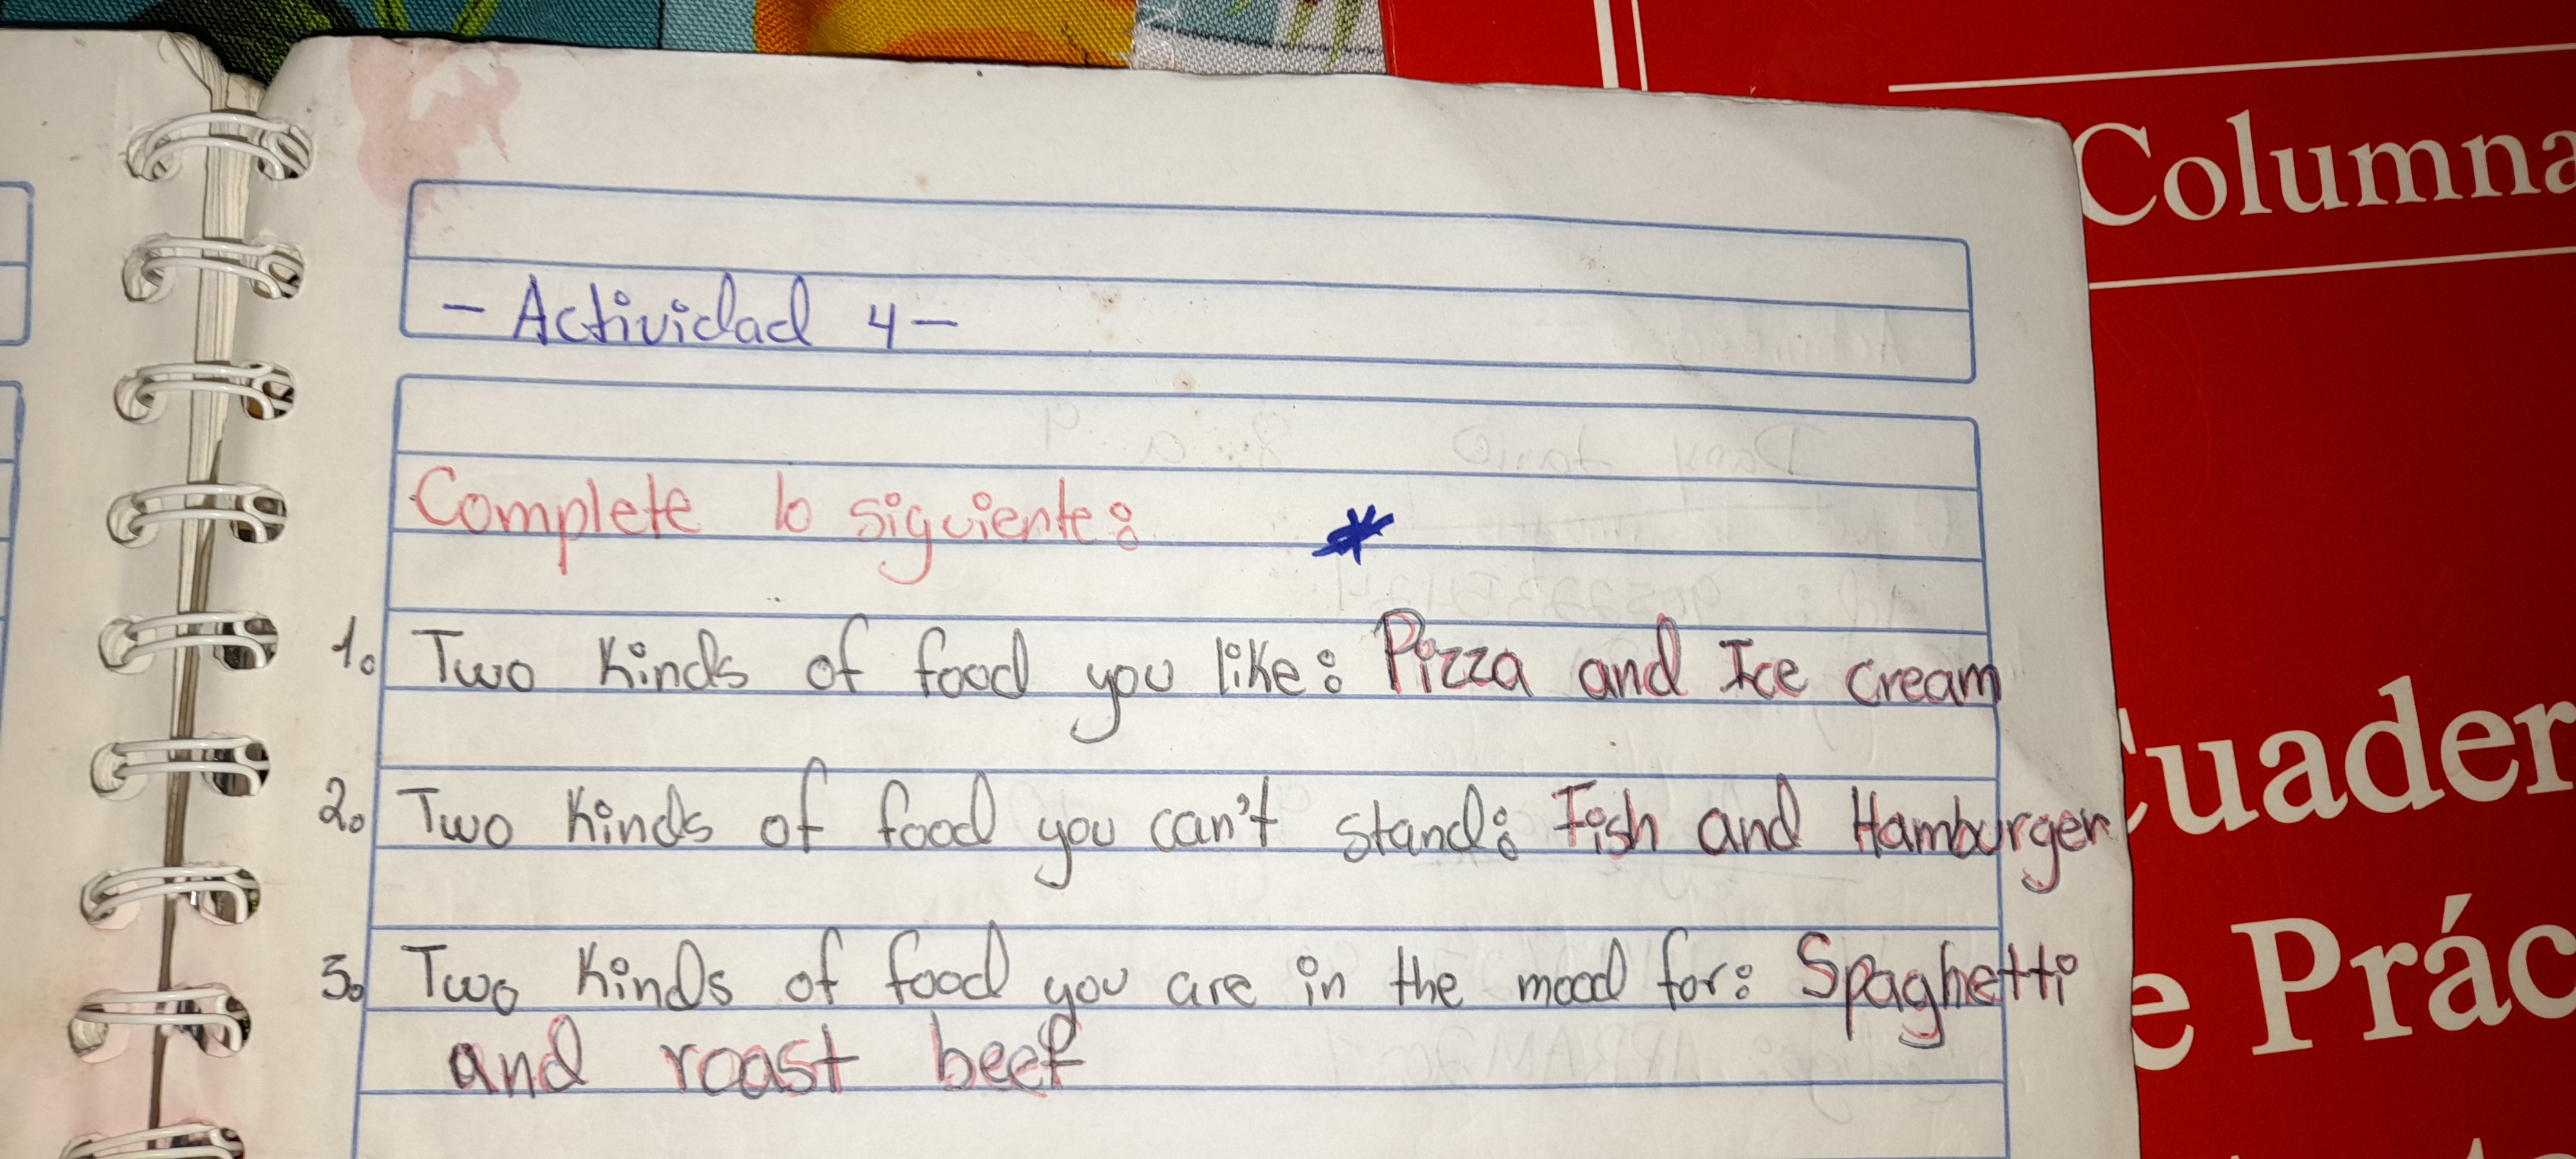 Columna
- Actividad 4 -
Complete lo siguiente:
1. Two kinds of food you like: Pizza and Ice cream
2. Two kinds of food you can't stand: Fish and Hamburger
3. Two kinds of food you are in the mood for: Spaghetti
and roast beef
Cuader
e Prác